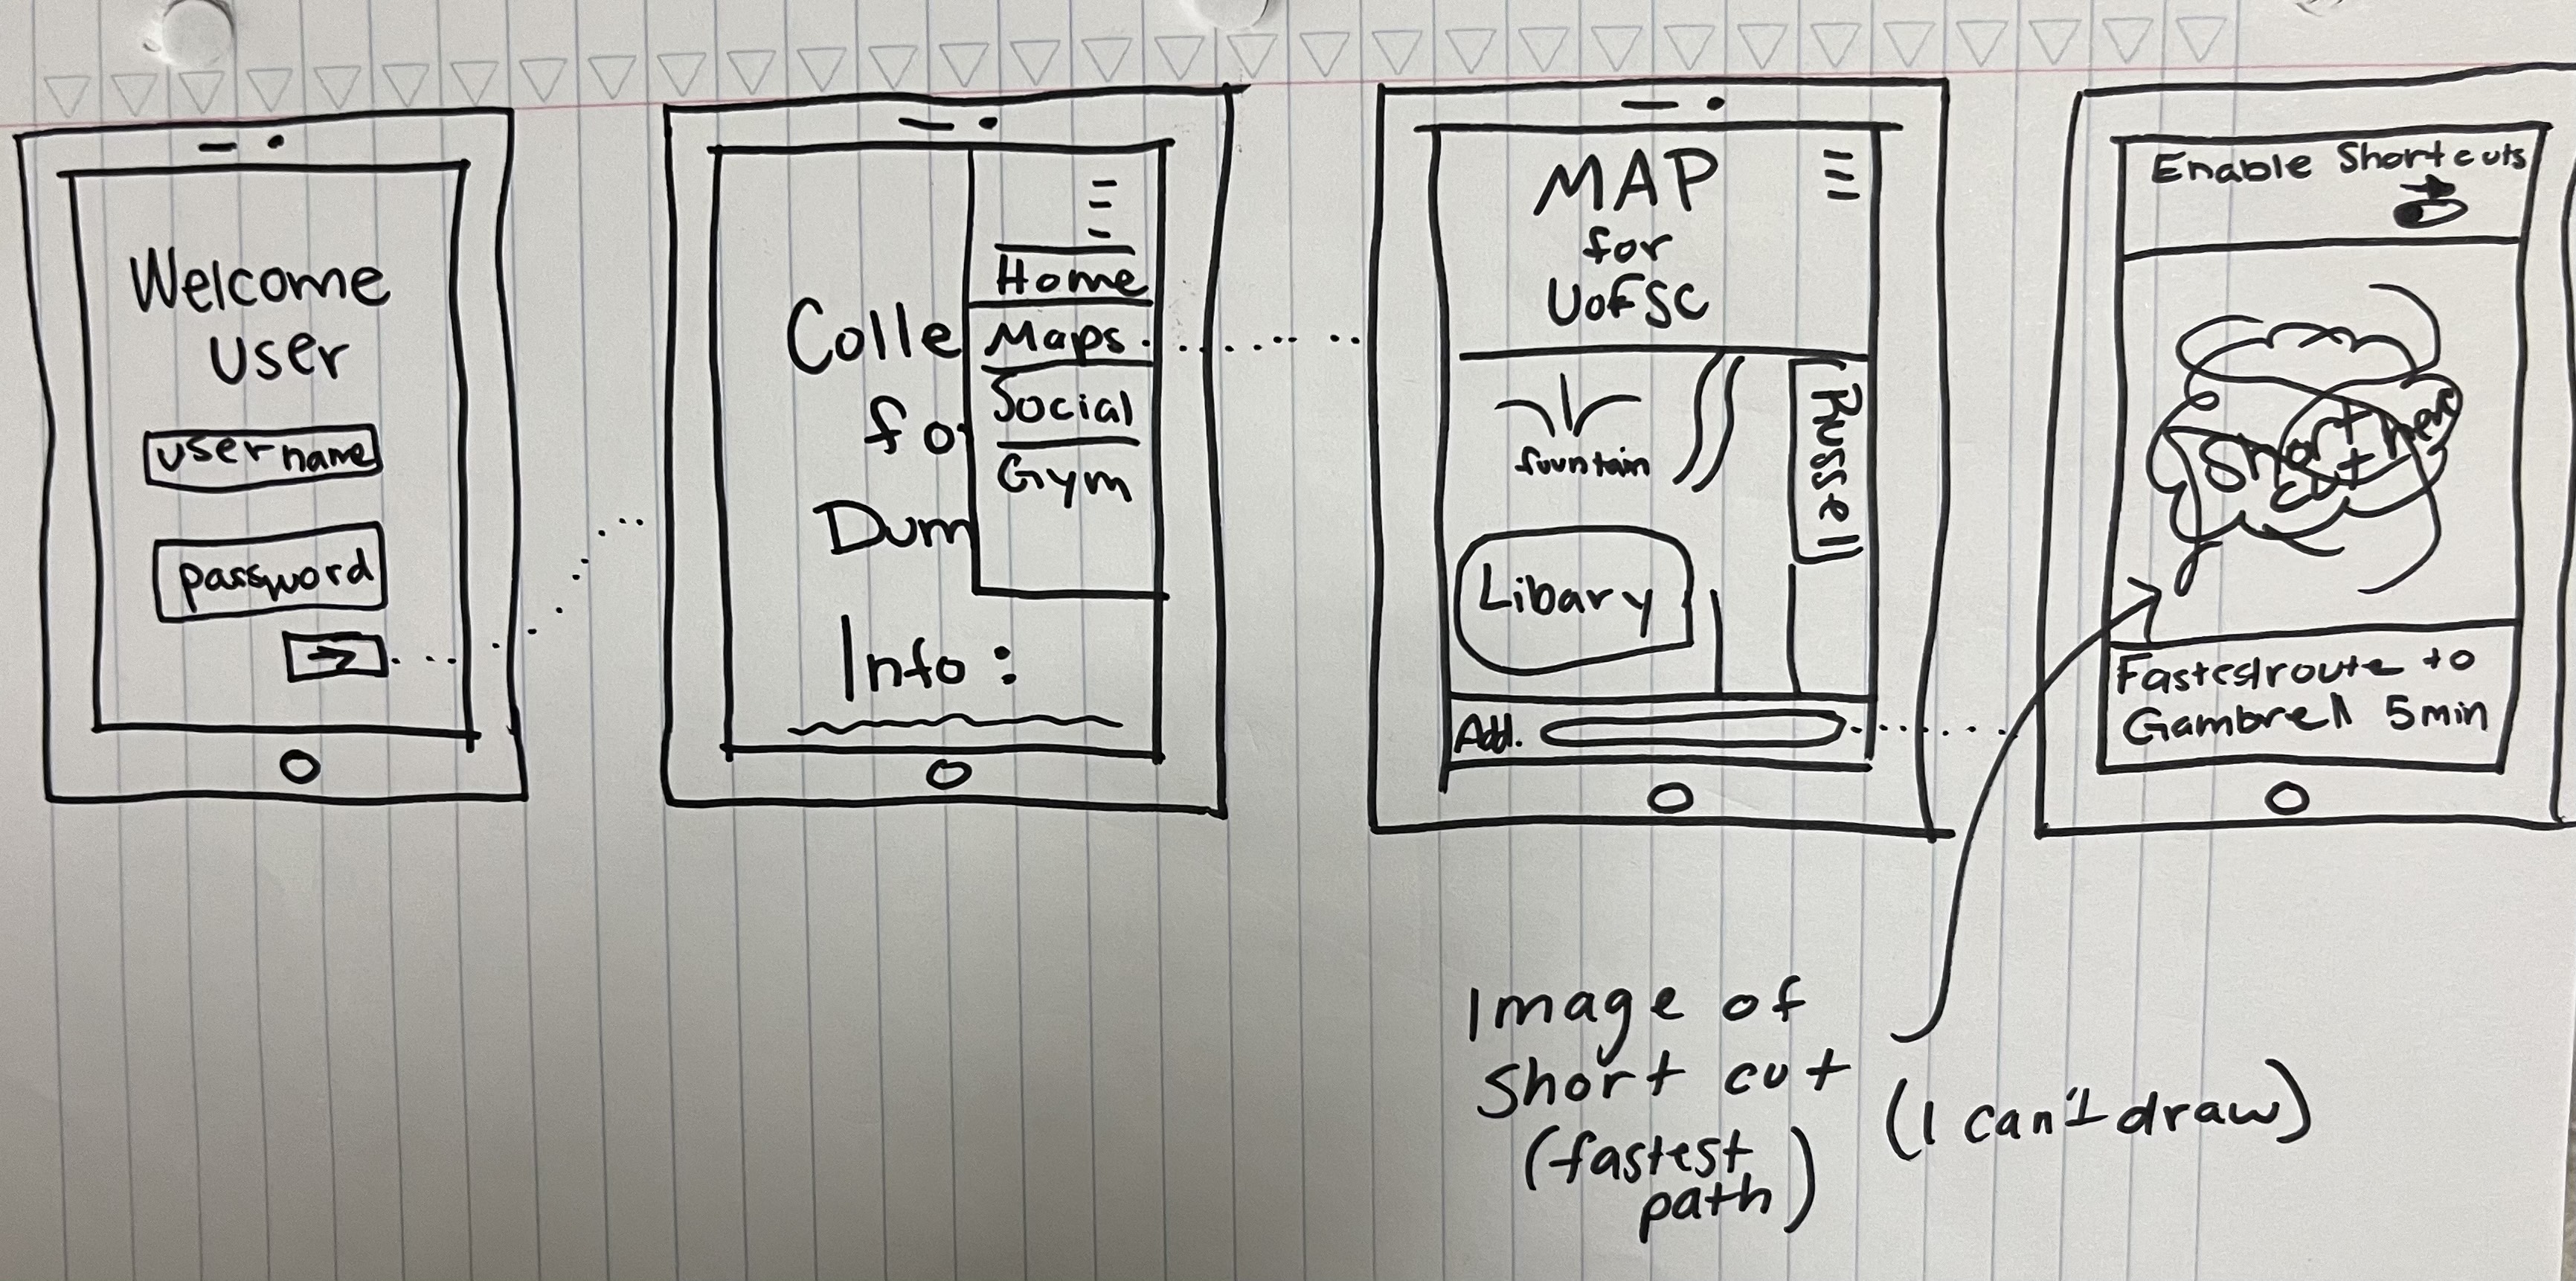 Welcome
User
username
password
Colle
fo
Dum
Info :
Home
Maps
Social
Gym
MAP
for
UofSC
fountain
Russell
Libary
Add.
Enable Shortcuts
Short
cut
Fastest route to
Gambrell 5min
Image of
short cut
(fastest
path)
(I can't draw)